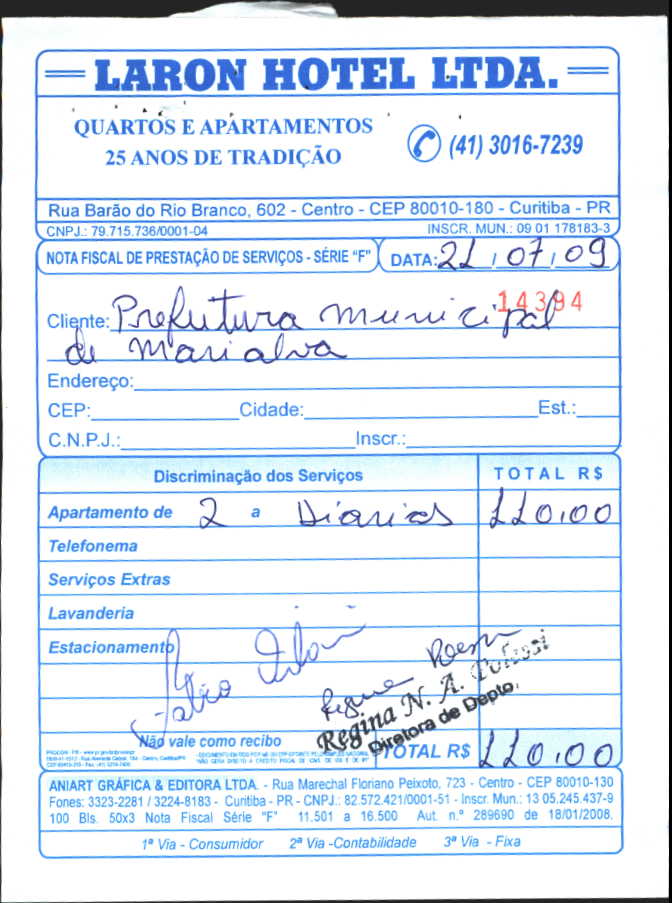 LARON HOTEL LTDA.
QUARTOS E APARTAMENTOS
25 ANOS DE TRADIÇÃO
(41) 3016-7239
Rua Barão do Rio Branco, 602 - Centro - CEP 80010-180 - Curitiba - PR
CNPJ.: 79.715.736/0001-04 INSCR. MUN.: 09 01 178183-3
NOTA FISCAL DE PRESTAÇÃO DE SERVIÇOS - SÉRIE "F" DATA: 21 / 07 / 09
14394
Cliente: Prefeitura municipal
de Marialva
Endereço:
CEP: Cidade: Est.:
C.N.P.J.: Inscr.:
Discriminação dos Serviços TOTAL R$
Apartamento de 2 a Diarias 110,00
Telefonema
Serviços Extras
Lavanderia
Estacionamento
Regina N. A.
Diretora de Depto.
Não vale como recibo
TOTAL R$ 110,00
ANIART GRÁFICA & EDITORA LTDA. - Rua Marechal Floriano Peixoto, 723 - Centro - CEP 80010-130
Fones: 3323-2281 / 3224-8183 - Curitiba - PR - CNPJ.: 82.572.421/0001-51 - Inscr. Mun.: 13 05.245.437-9
100 Bls. 50x3 Nota Fiscal Série "F" 11.501 a 16.500 Aut. n.º 289690 de 18/01/2008.
1ª Via - Consumidor 2ª Via -Contabilidade 3ª Via - Fixa